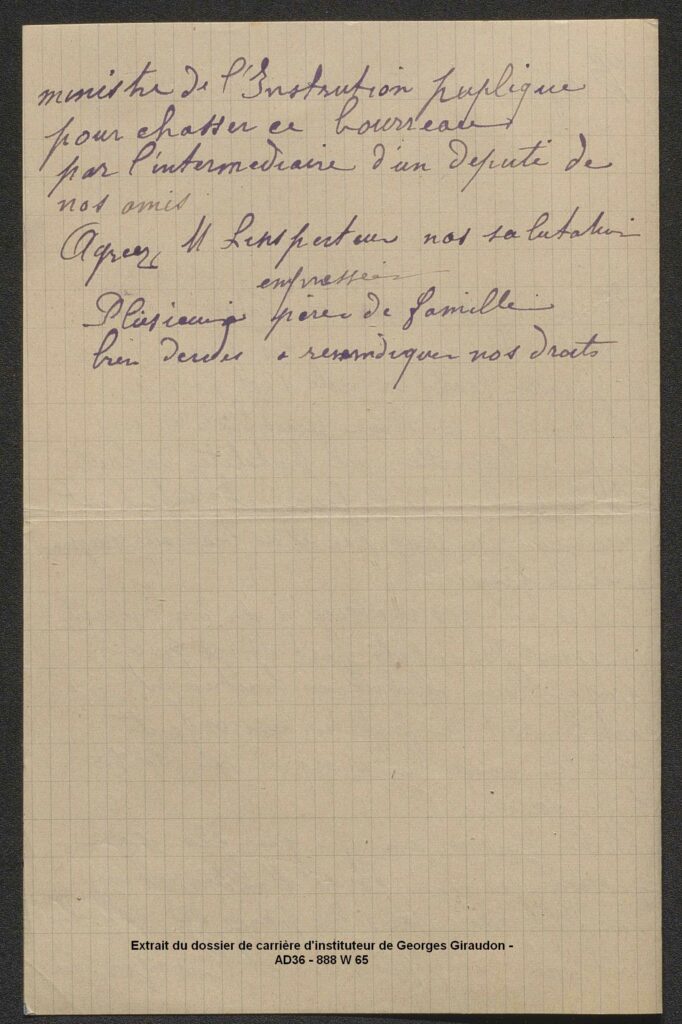 ministre de l'Instrution puplique
pour chasser ce bourreau
par l'intermediaire d'un deputé de
nos amis
Agreez M Linspecteur nos salutation
empressée
Plusieurs pères de famille
bien à revendiquer nos droits
Extrait du dossier de carrière d'instituteur de Georges Giraudon -
AD36 - 888 W 65